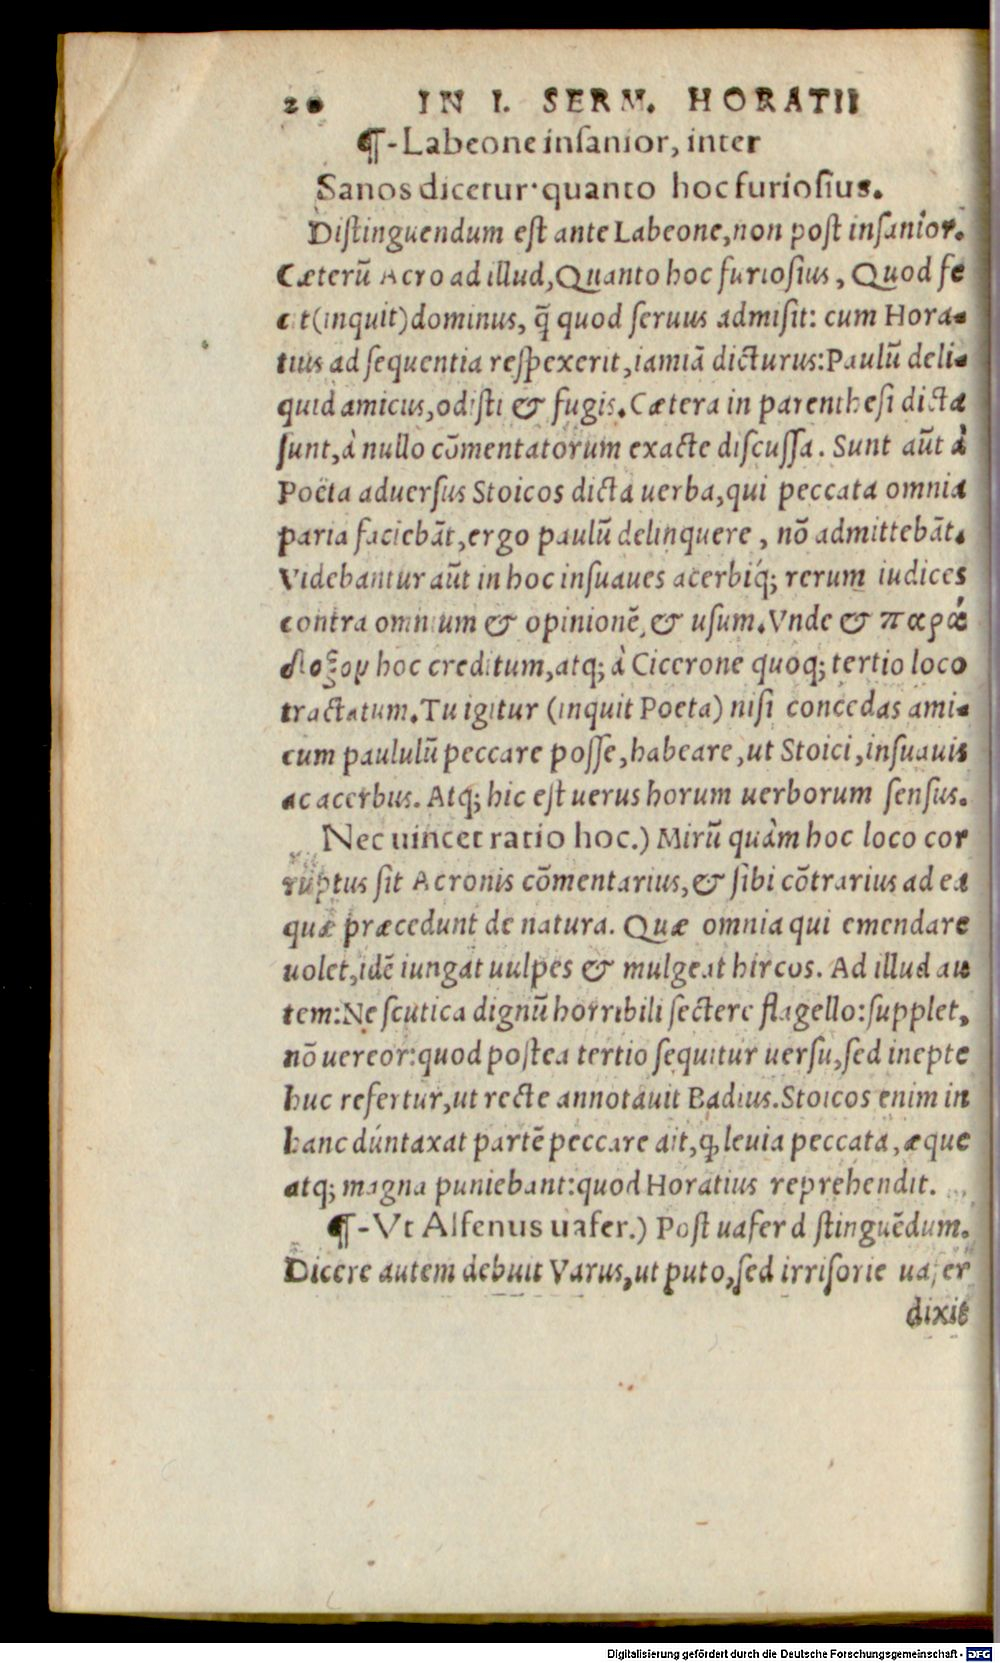 20 IN I. SERM. HORATII
¶-Labeone inſanior, inter
Sanos dicetur·quanto hoc furioſius.
Diſtinguendum eſt ante Labeone,non poſt inſanior.
Cæterũ Acro ad illud,Quanto hoc furioſius, Quod fe
cit(inquit)dominus, q̃ quod ſeruus admiſit: cum Hora-
tius ad ſequentia reſpexerit,iamiã dicturus:Paulũ deli-
quid amicus,odiſti & fugis.Cætera in parentheſi dicta
ſunt,à nullo cõmentatorum exacte diſcuſſa. Sunt aũt à
Poëta aduerſus Stoicos dicta uerba,qui peccata omnia
paria faciebãt,ergo paulũ delinquere, nõ admittebãt.
Videbantur aũt in hoc inſuaues acerbiq́; rerum iudices
contra omnium & opinionẽ,& uſum.Vnde & παρά
δοξον hoc creditum,atq; à Cicerone quoq; tertio loco
tractatum.Tu igitur (inquit Poeta) niſi concedas ami-
cum paululũ peccare poſſe,habeare,ut Stoici,inſuauis
ac acerbus. Atq; hic eſt uerus horum uerborum ſenſus.
Nec uincet ratio hoc.) Mirũ quàm hoc loco cor
ruptus ſit Acronis cõmentarius,& ſibi cõtrarius ad ea
quæ præcedunt de natura. Quæ omnia qui emendare
uolet,idẽ iungat uulpes & mulgeat hircos. Ad illud au
tem:Ne ſcutica dignũ horribili ſectere flagello:ſupplet,
nõ uereor:quod poſtea tertio ſequitur uerſu,ſed inepte
huc refertur,ut recte annotauit Badius.Stoicos enim in
hanc dúntaxat partẽ peccare ait,ꝙ leuia peccata,æque
atq; magna puniebant:quod Horatius reprehendit.
¶-Vt Alfenus uafer.) Poſt uafer diſtinguẽdum.
Dicere autem debuit Varus,ut puto,ſed irriſorie uafer
dixit
Digitalisierung gefördert durch die Deutsche Forschungsgemeinschaft - DFG